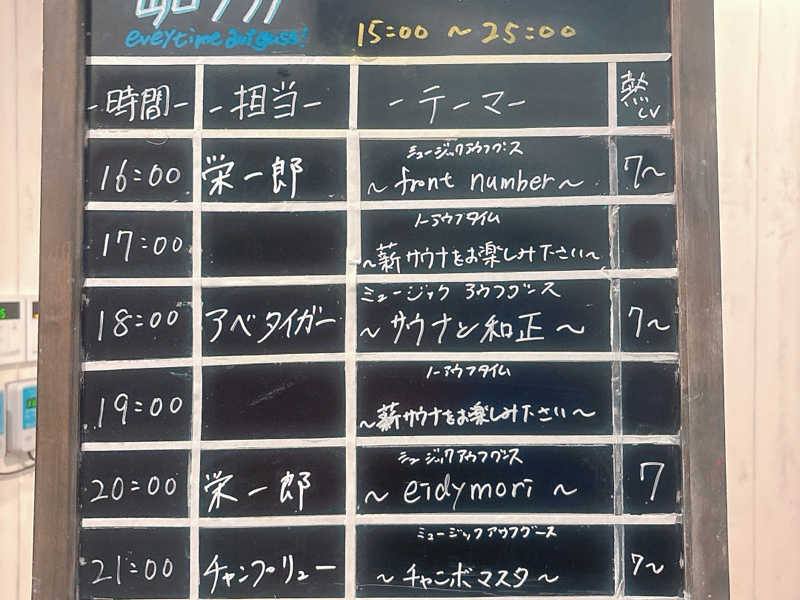 15:00 ~ 25:00
-時間- -担当- -テーマ- 熱LV
ミュージックアウフグース
16:00 栄一郎 ~ front number ~ 7~
ノーアウフタイム
17:00 ~薪サウナをお楽しみ下さい~
ミュージック アウフグース
18:00 アベタイガー ~ サウナと和正 ~ 7~
ノーアウフタイム
19:00 ~薪サウナをお楽しみ下さい~
ミュージックアウフグース
20:00 栄一郎 ~ eidymori ~ 7
ミュージック アウフグース
21:00 チャンプリュー ~ チャンボマスタ ~ 7~